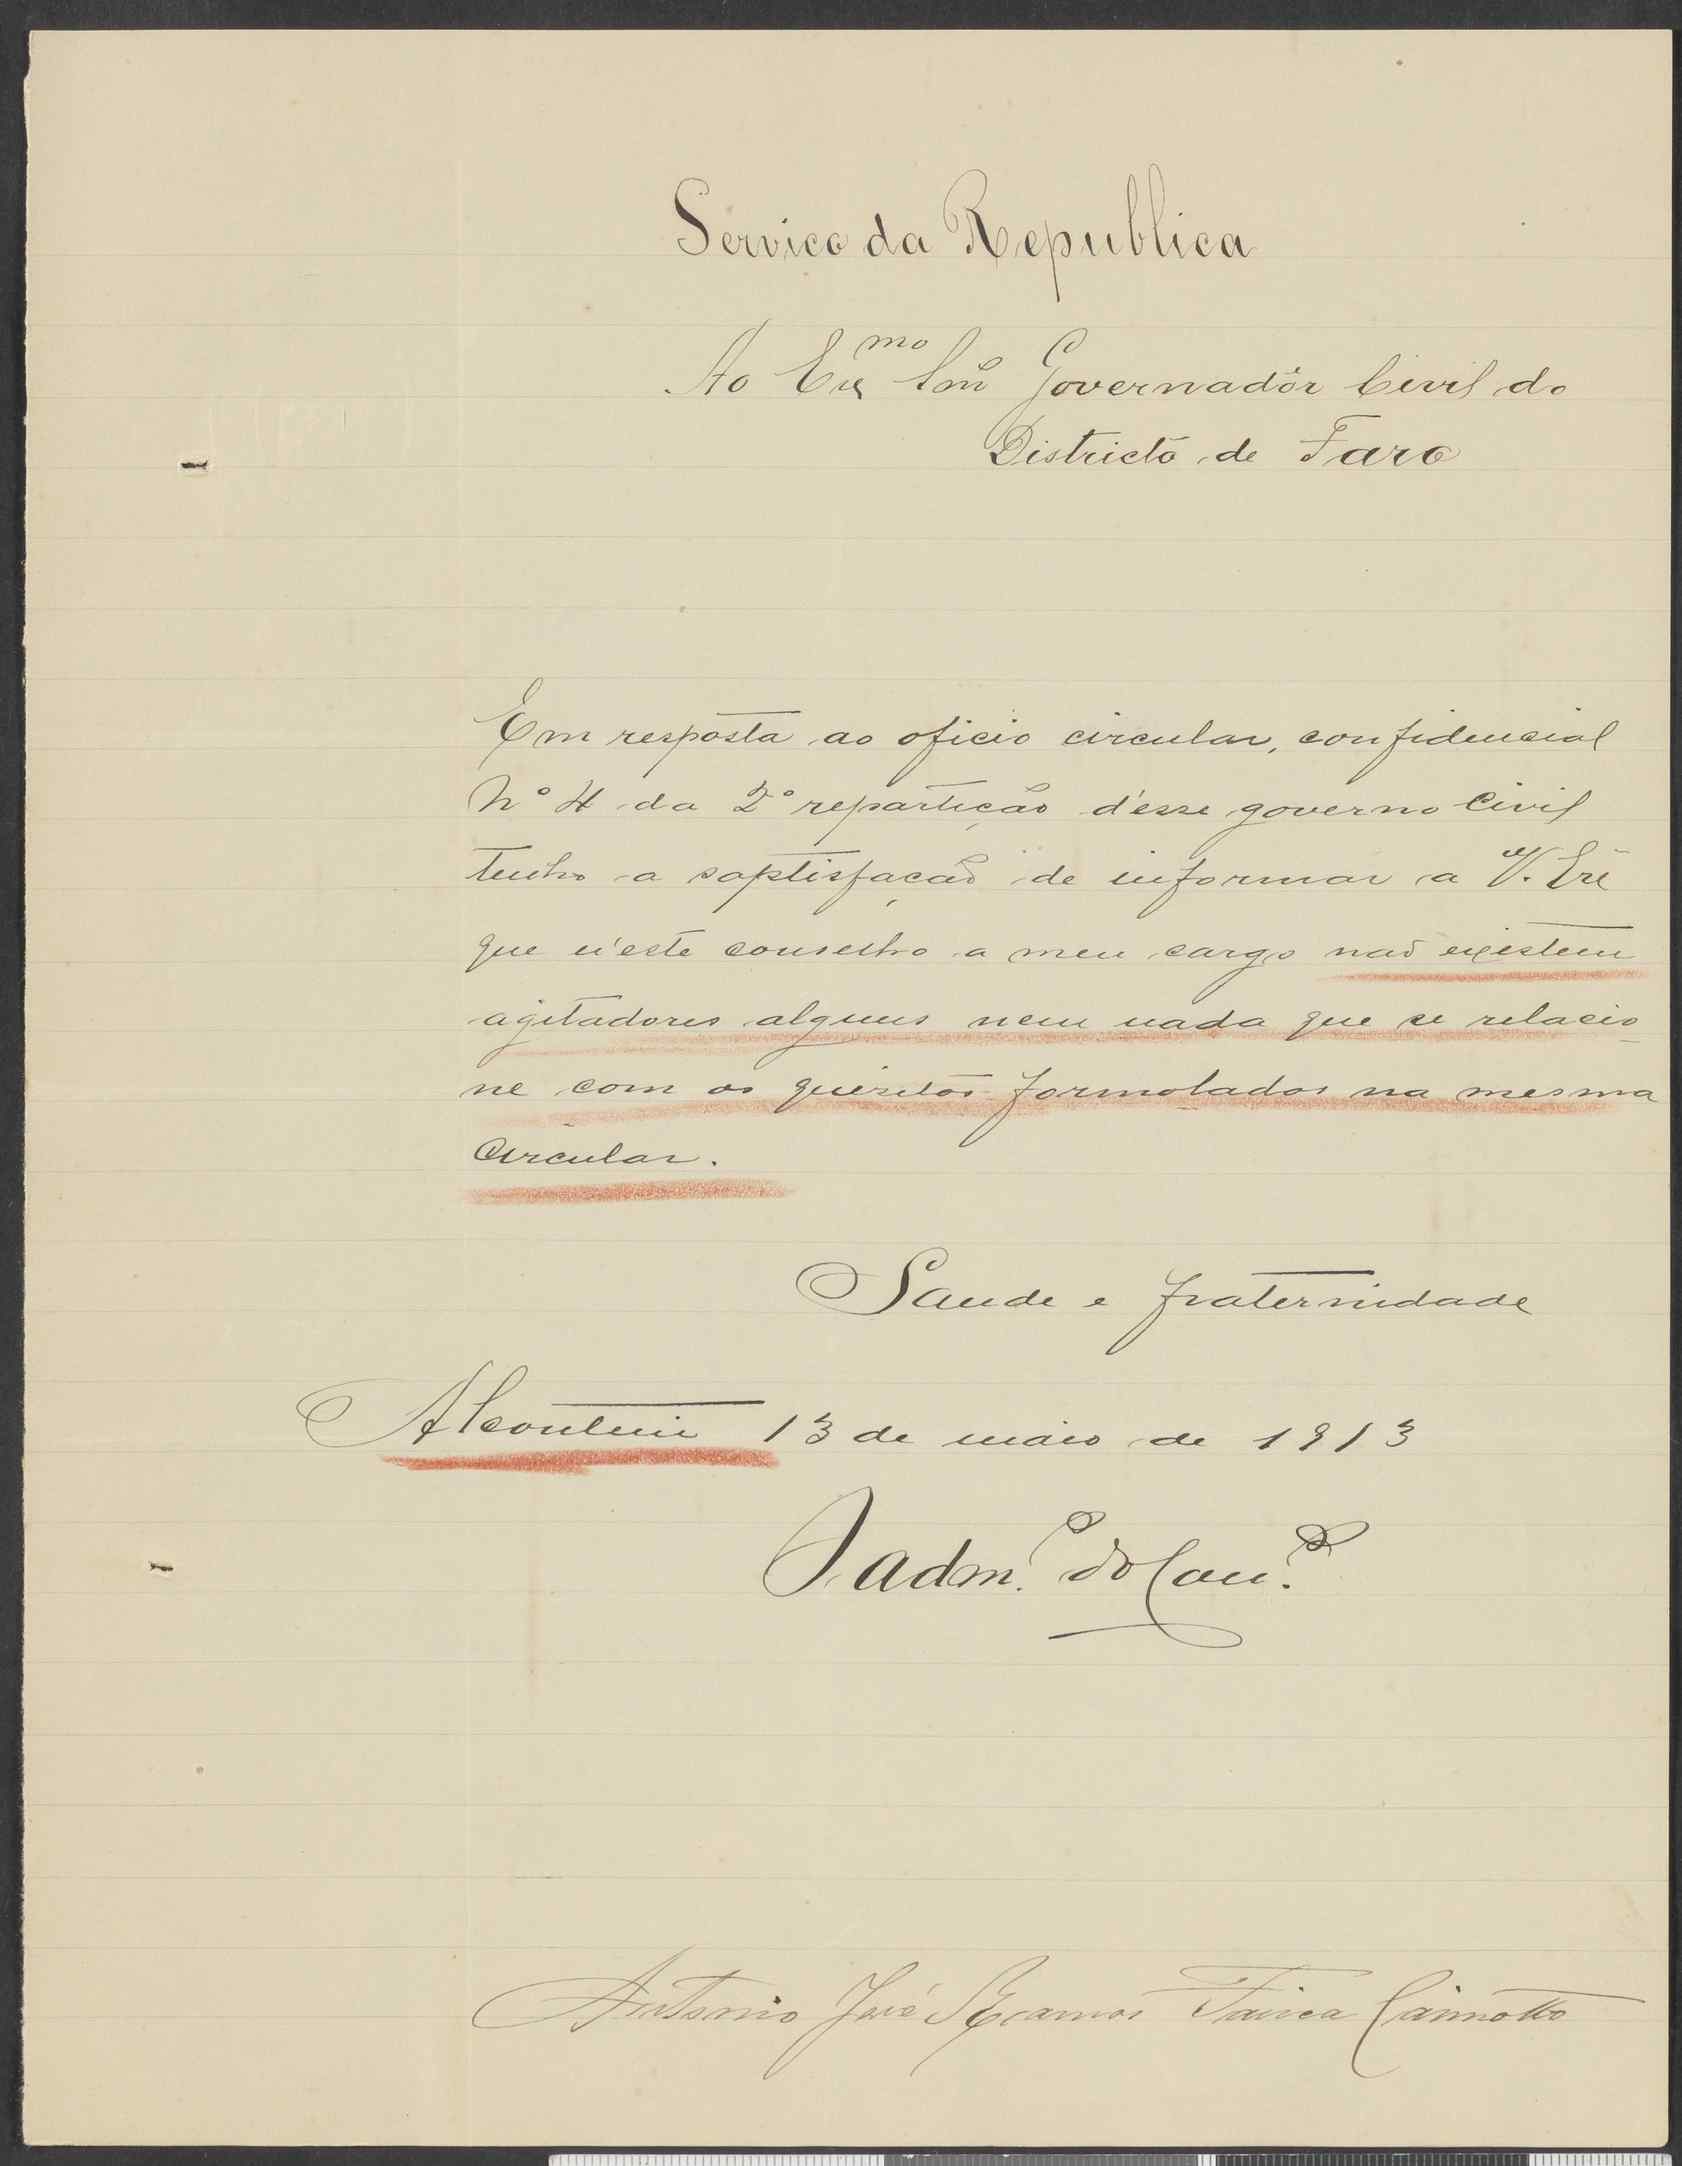 Servico da Republica
Ao Ex.mo Snr Governadôr Civil do
Districto de Faro
Em resposta ao oficio circular, confidencial
Nº 4 da 2º repartição d'esse governo Civil
tenho a saptisfação de informar a V. Exª
que n'este conselho a meu cargo não existem
agitadores alguns nem nada que se relacio
ne com os quesitos formolados na mesma
circular.
Saude e fraternidade
Alcoutim 13 de maio de 1913
O adm.or do Con.o
Antonio José Ramos Faisca